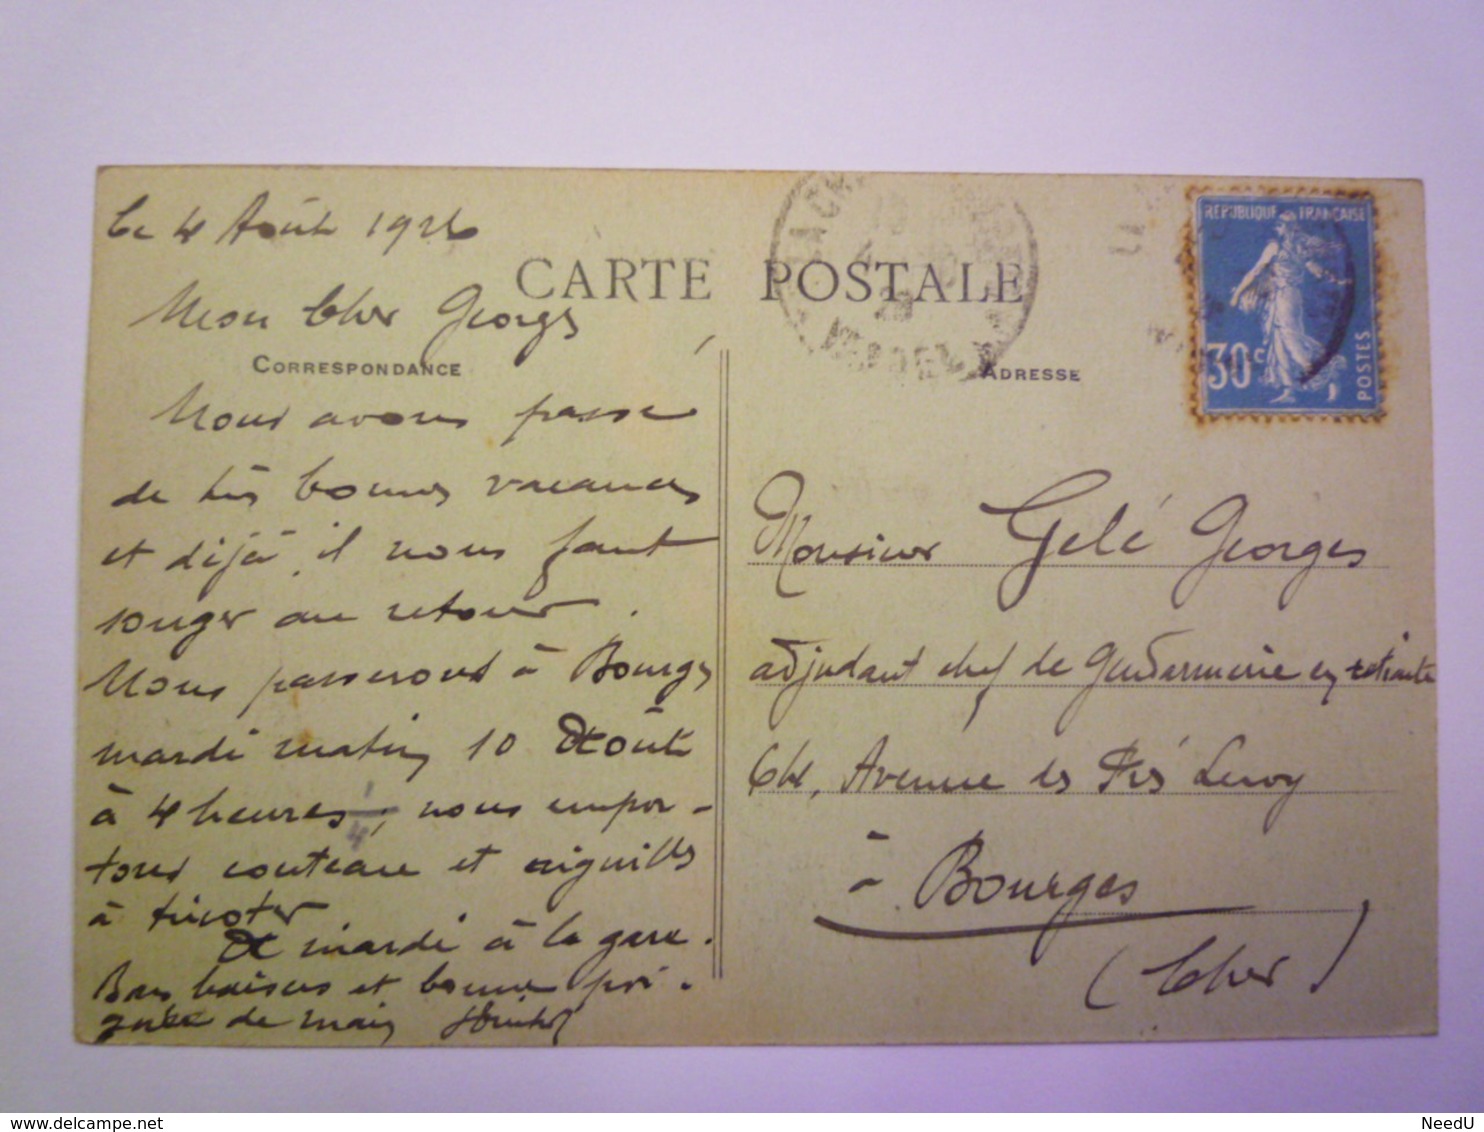 Le 4 Août 1926
Mon Cher Georges
CARTE POSTALE
CORRESPONDANCE
ADRESSE
Nous avons passé
de très bonnes vacances
et déjà il nous faut
songer au retour.
Nous passerons à Bourges
mardi matin 10 Août
à 4 heures 1/4, nous empor-
tons couteau et aiguilles
à tricoter.
A mardi à la gare.
Bons baisers et bonne poi-
gnée de main
REPUBLIQUE FRANÇAISE
30c
POSTES
Monsieur Gelé Georges
adjudant chef de Gendarmerie en retraite
64, Avenue des Prés Leroy
à Bourges
(Cher)
NeedU